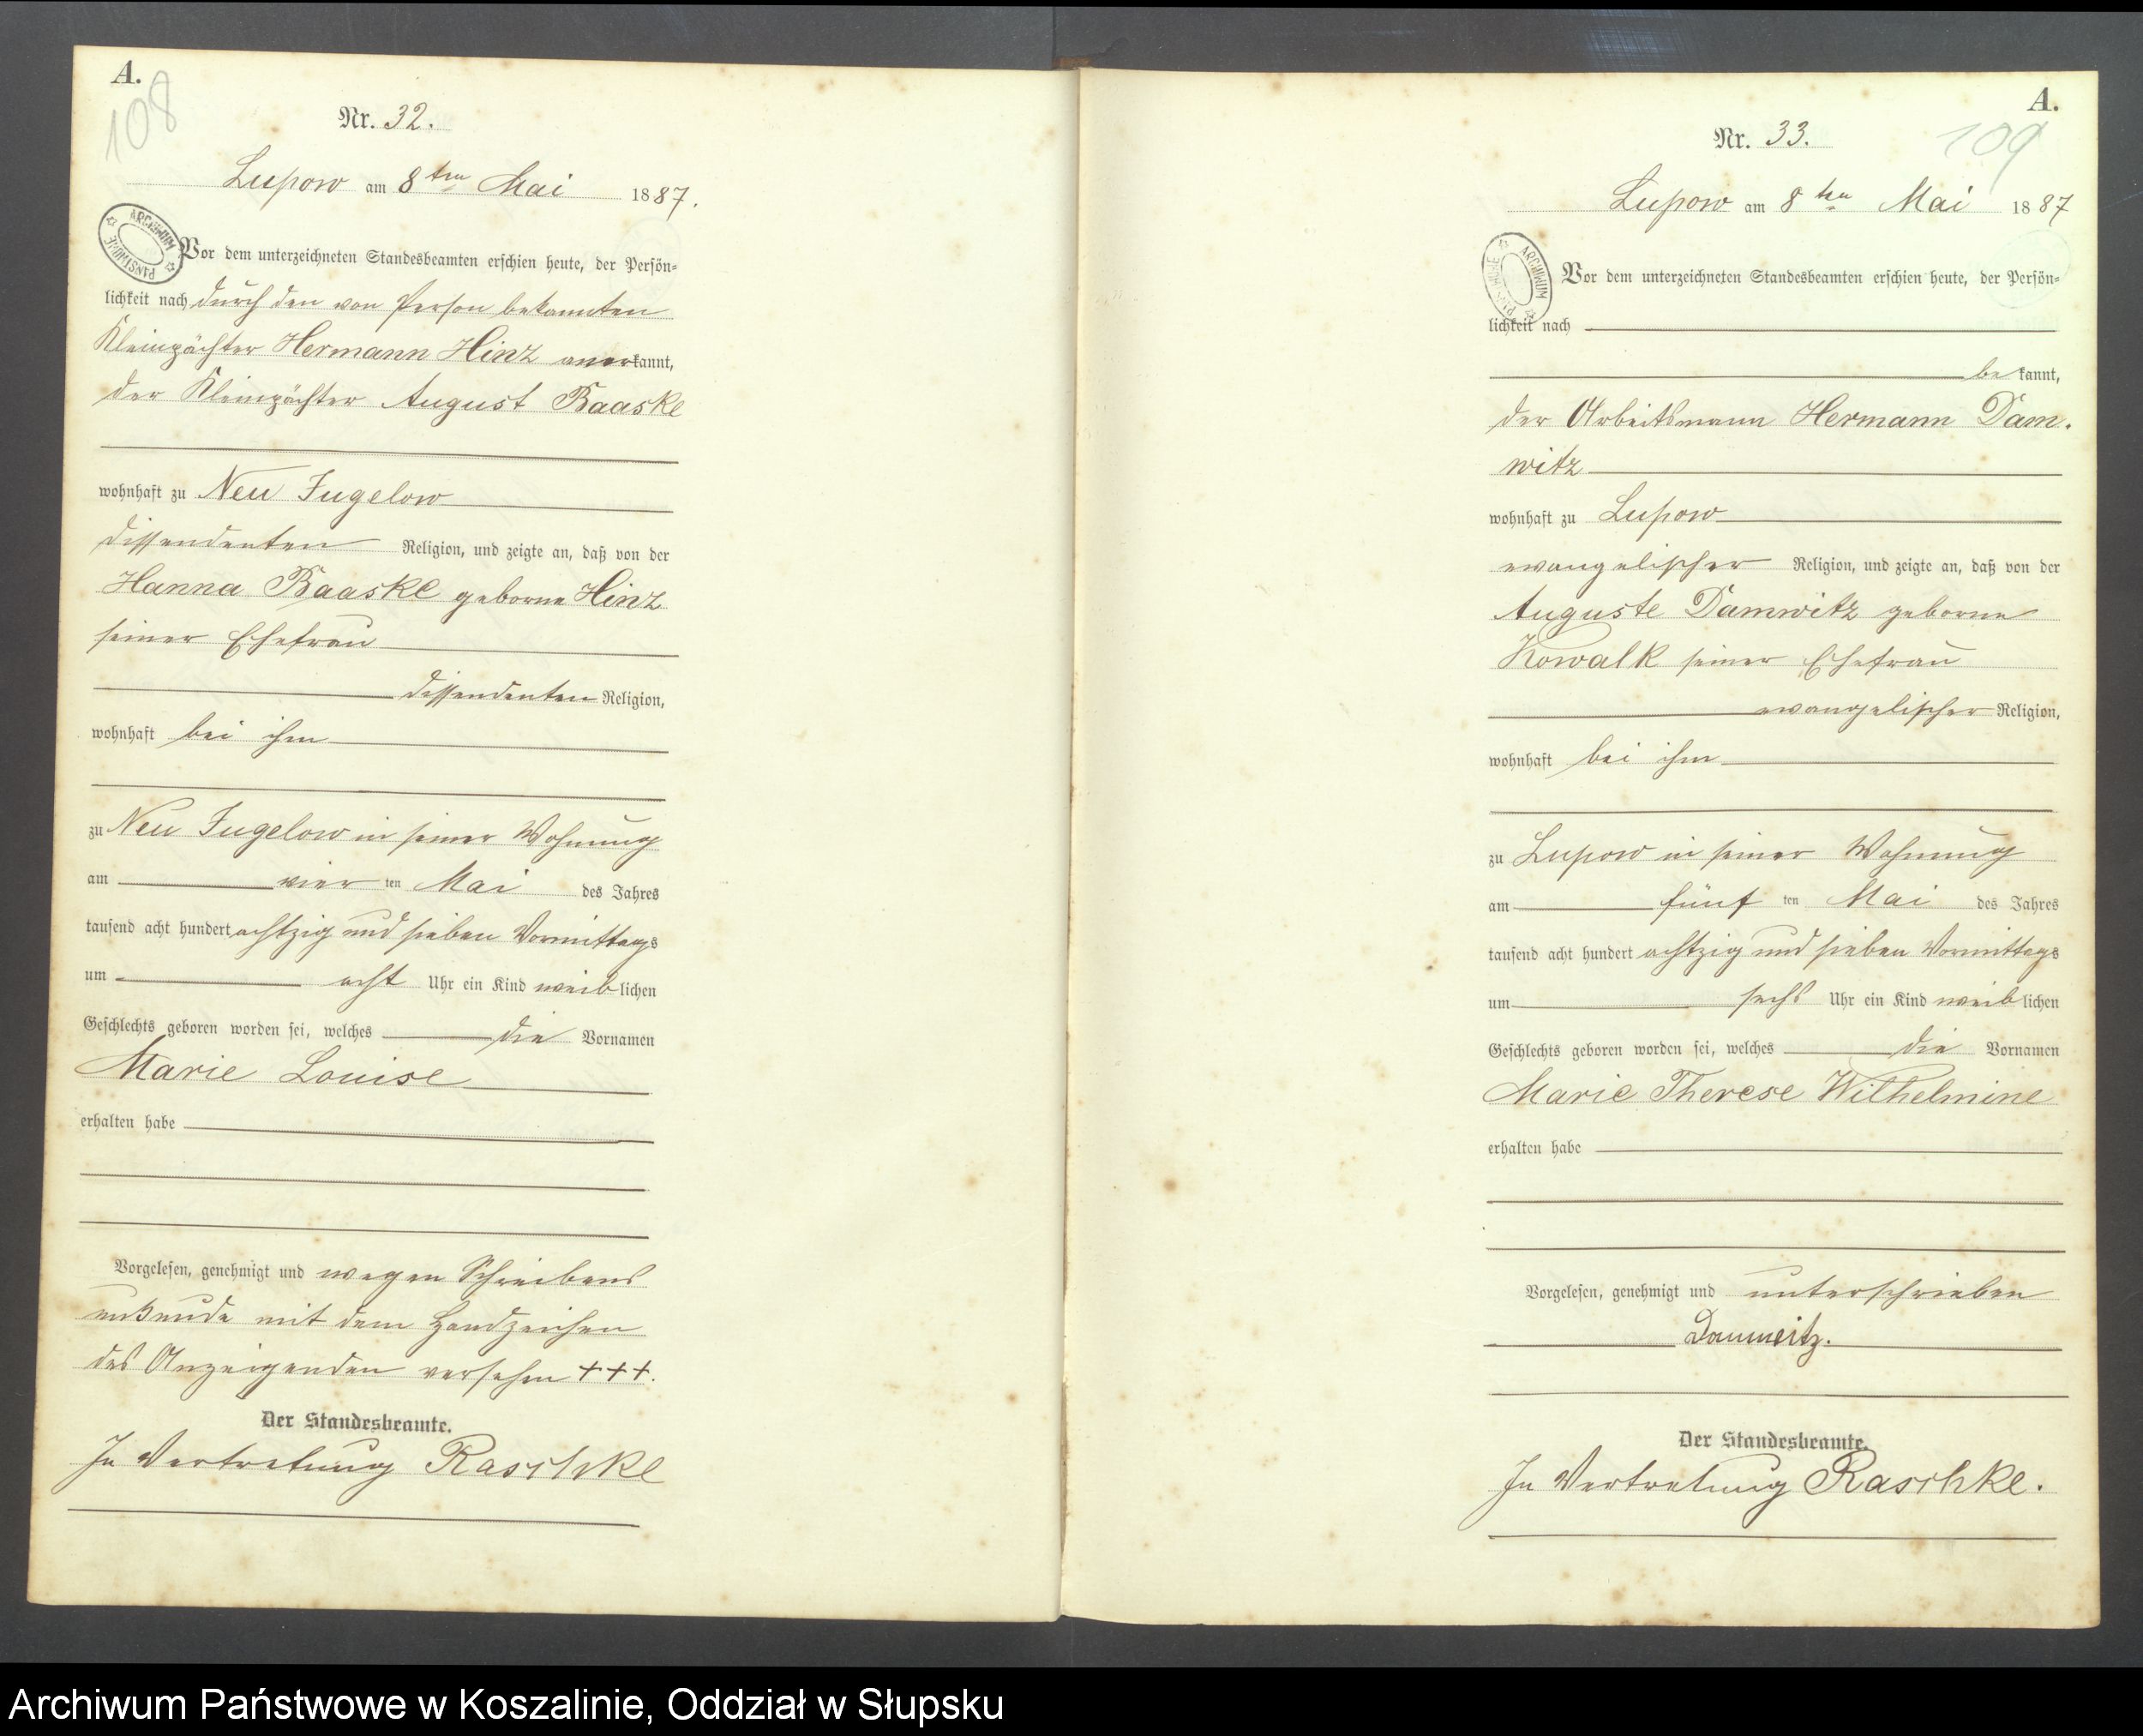 A.
108
Nr. 32.
Lupow am 8ten Mai 1887.
ARCHIWUM PAŃSTWOWE
Vor dem unterzeichneten Standesbeamten erschien heute, der Persön-
lichkeit nach durch den von Person bekannten
Kleinpächter Hermann Hinz anerkannt,
der Kleinpächter August Baaske
wohnhaft zu Neu Jugelow
dissendenten Religion, und zeigte an, daß von der
Hanna Baaske geborne Hinz
seiner Ehefrau
dissendenten Religion,
wohnhaft bei ihm
zu Neu Jugelow in seiner Wohnung
am vier ten Mai des Jahres
tausend acht hundert achtzig und sieben Vormittags
um acht Uhr ein Kind weiblichen
Geschlechts geboren worden sei, welches die Vornamen
Marie Louise
erhalten habe
Vorgelesen, genehmigt und wegen Schreibens
unkunde mit dem Handzeichen
des Anzeigenden versehen +++.
Der Standesbeamte.
In Vertretung Raschke
A.
109
Nr. 33.
Lupow am 8ten Mai 1887
ARCHIWUM PAŃSTWOWE
Vor dem unterzeichneten Standesbeamten erschien heute, der Persön-
lichkeit nach
bekannt,
der Arbeitsmann Hermann Dam.
witz
wohnhaft zu Lupow
evangelischer Religion, und zeigte an, daß von der
Auguste Damwitz geborne
Kowalk seiner Ehefrau
evangelischer Religion,
wohnhaft bei ihm
zu Lupow in seiner Wohnung
am fünf ten Mai des Jahres
tausend acht hundert achtzig und sieben Vormittags
um sechs Uhr ein Kind weiblichen
Geschlechts geboren worden sei, welches die Vornamen
Marie Therese Wilhelmine
erhalten habe
Vorgelesen, genehmigt und unterschrieben
Damwitz.
Der Standesbeamte.
In Vertretung Raschke.
Archiwum Państwowe w Koszalinie, Oddział w Słupsku